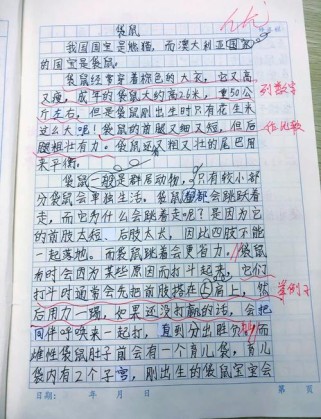 袋鼠
我国国宝是熊猫，而澳大利亚国宝
的国宝是袋鼠。
袋鼠经常穿着棕色的大衣，它又高
又瘦，成年的袋鼠大约高2.6米，重50公
斤左右，但是袋鼠刚出生时只有花生米
这么大吧！袋鼠的前腿又细又短，但后
腿粗壮有力。袋鼠还又粗又壮的尾巴用
来平衡。
袋鼠一般是群居动物，只有较小部
分袋鼠会单独生活。袋鼠都会跳跃着
走，而它为什么会跳着走呢？是因为它
的前肢太短、后肢太长，因此四肢不能
一起落地。而袋鼠跳着会更省力。袋鼠
有时会因为某些原因而打斗起来，它们
打斗时通常会先把前肢搭在肩上，然
后用力一踢，如果还没打赢的话，会把
同伴呼唤来一起打，直到分出胜负。而
雌性袋鼠肚子前会有一个育儿袋，育儿
袋内有2个子宫，刚出生的袋鼠宝宝会
列数字
作比较
举例子
日期：
年 月 日
第 页